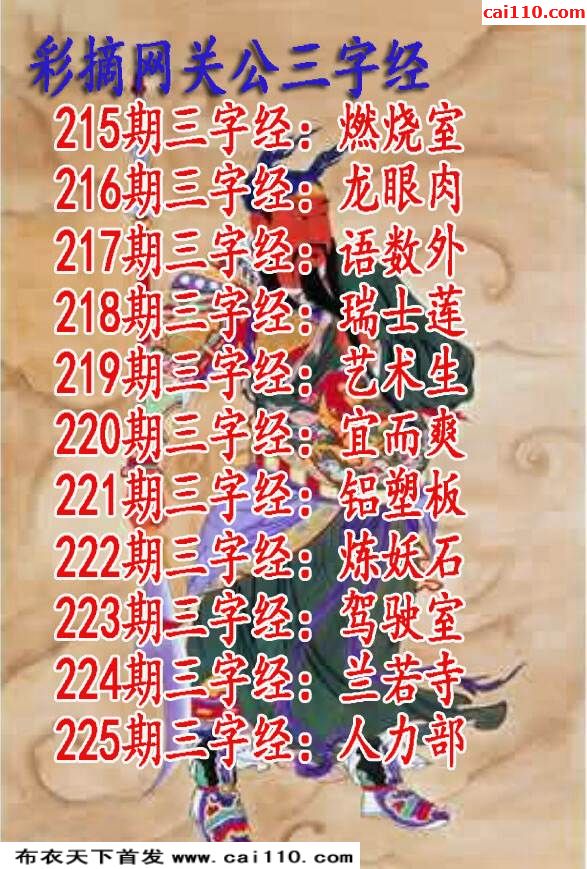 cai110.com
彩摘网关公三字经
215期三字经：燃烧室
216期三字经：龙眼肉
217期三字经：语数外
218期三字经：瑞士莲
219期三字经：艺术生
220期三字经：宜而爽
221期三字经：铝塑板
222期三字经：炼妖石
223期三字经：驾驶室
224期三字经：兰若寺
225期三字经：人力部
布衣天下首发 www.cai110.com